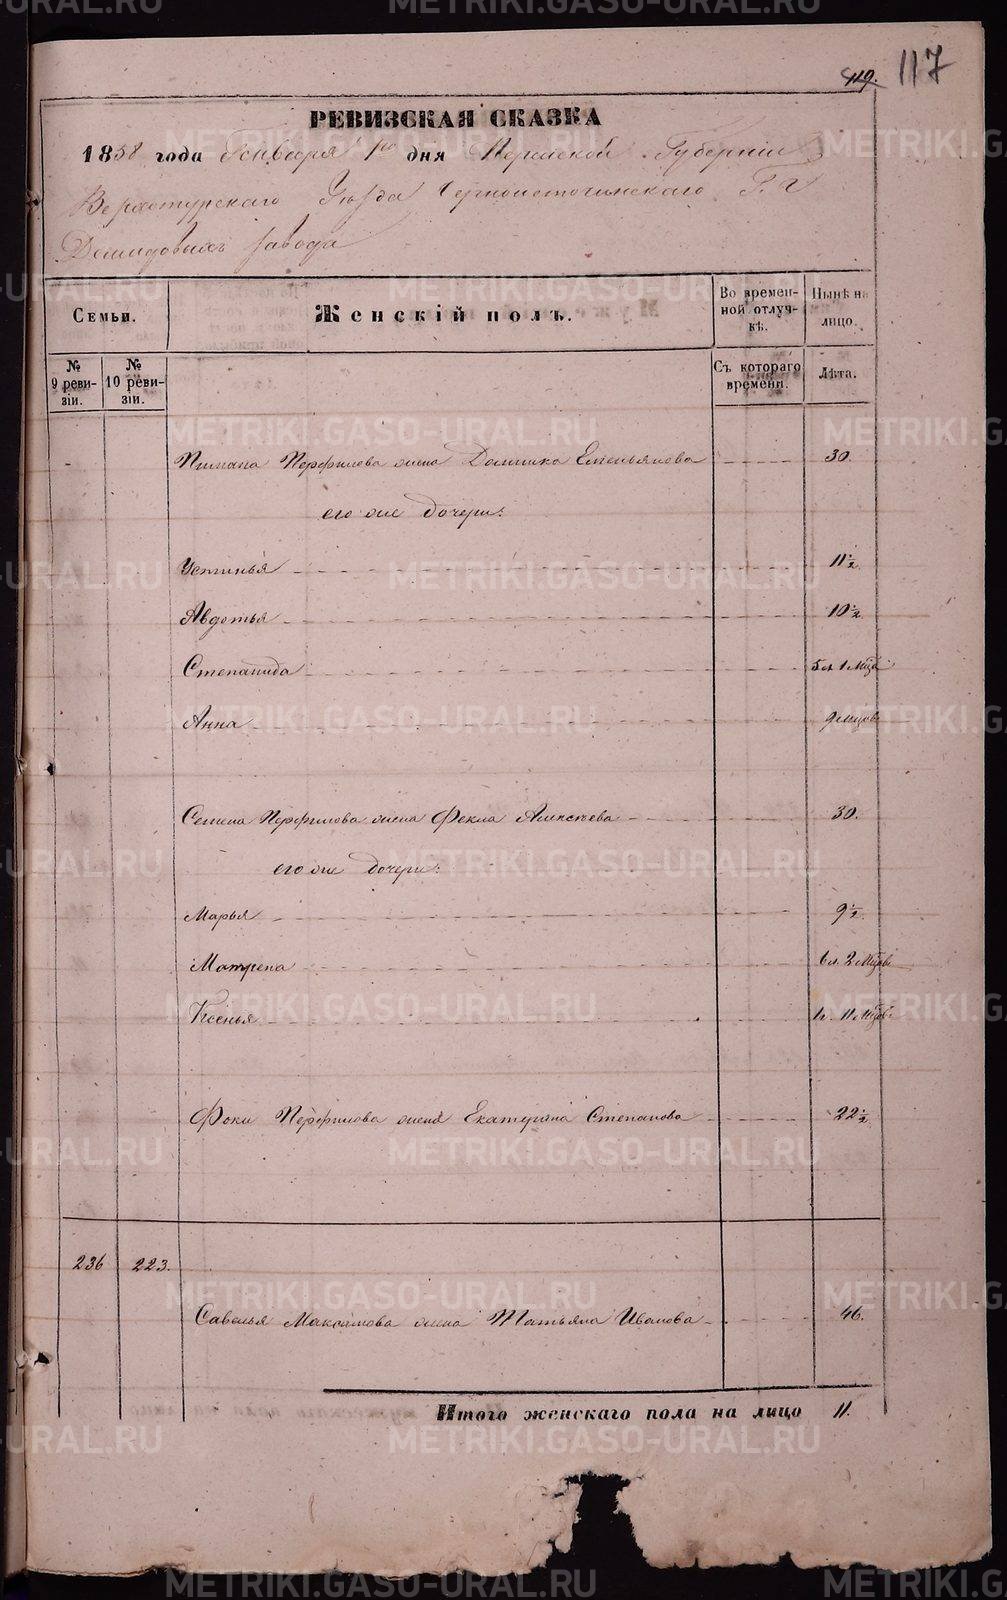 119. 117
РЕВИЗСКАЯ СКАЗКА
1858 года Генваря 1го дня Пермской Губерніи
Верхотурскаго Уѣзда Черноисточинскаго Г. г
Демидовыхъ завода
Семьи.
Женскій полъ.
Во времен-
ной отлуч-
кѣ.
Нынѣ на
лицо.
№
9 реви-
зіи.
№
10 реви-
зіи.
Съ котораго
времени.
Лѣта.
Пимана Перфилова жена Домника Емельянова 30.
его же дочери:
Устинья 11 1/2
Авдотья 10 1/2
Степанида 5 л 1 мцъ
Анна 9 мцовъ
Семена Перфилова жена Фекла Алексѣева 30.
его же дочери:
Марья 9 1/2
Матрена 6 л. 2 мцовъ
Ксенья 1 г. 11 мцовъ
Фоки Перфилова жена Екатерина Степанова 22 1/2
236 223.
Савелья Максимова жена Татьяна Иванова 46.
Итого женскаго пола на лицо 11.
METRIKI.GASO-URAL.RU